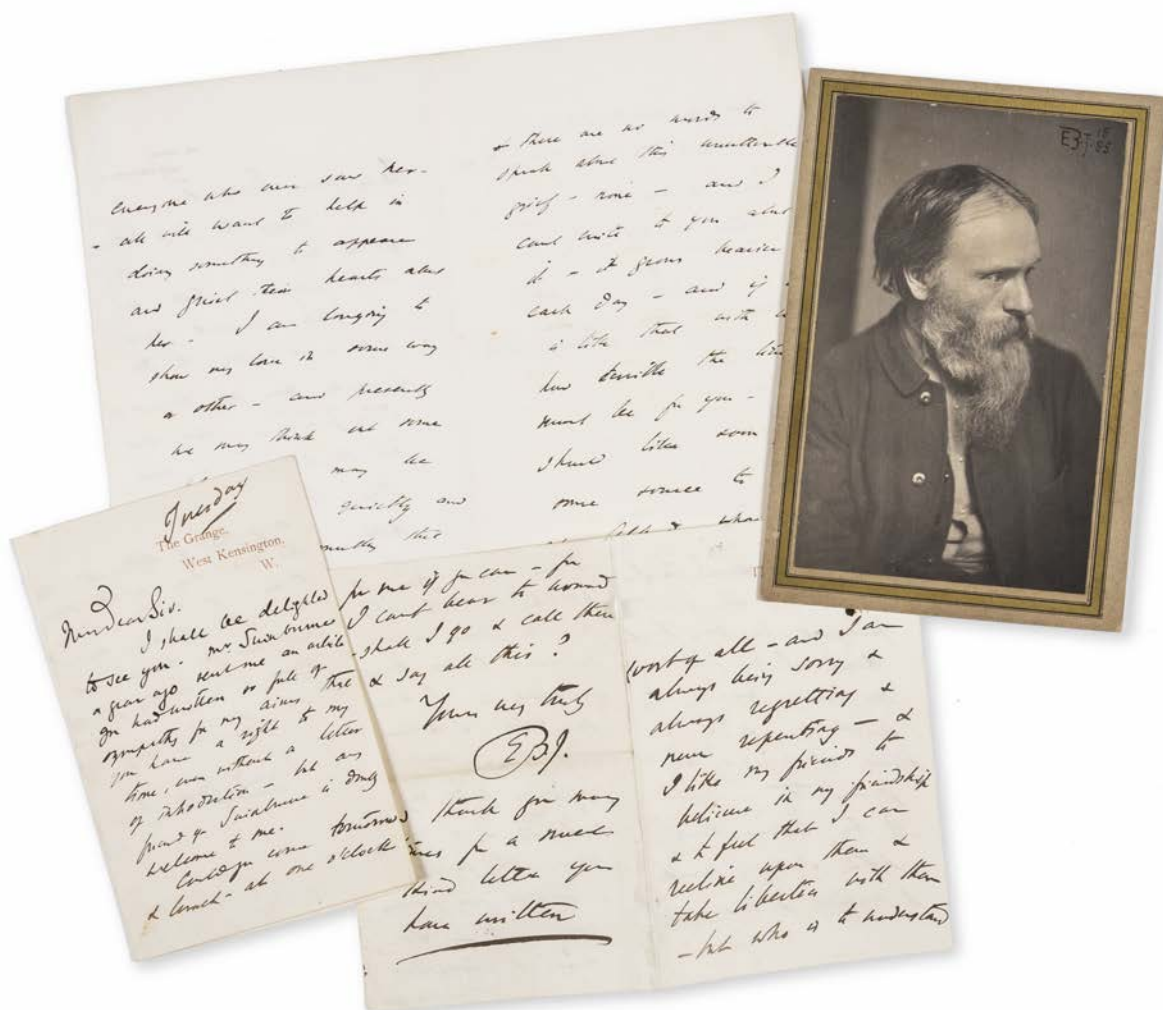 everyone who ever saw her -
- all will want to help in
doing something to appease
and grief their hearts about
her - I am longing to
show my love in some way
or other - and presently
we may think out some
may be
quietly and
this
& there are no words to
speak about this unutterable
grief - none - and I
cant write to you about
it - it grows heavier
each day - and if
is like that with
how terrible the
must be for you -
should like soon
some source to
EBJ. 18
85
Tuesday
The Grange,
West Kensington,
W.
My dear Sir.
I shall be delighted
to see you. Mr. Swinburne
a year ago sent me an article
you had written so full of
sympathy for my aims that
you have a right to my
time, even without a letter
of introduction - but any
friend of Swinburne is doubly
welcome to me.
Could you come tomorrow
& lunch - at one o'clock
for me if you can - for
I cant bear to wound
- shall I go & call there
& say all this?
Yours very truly
EBJ.
thank you many
times for a much
kind letter you
have written
worst of all - and I am
always being sorry &
always regretting &
never repenting - &
I like my friends to
believe in my friendship
& to feel that I can
recline upon them &
take liberties with them
- but who is to understand